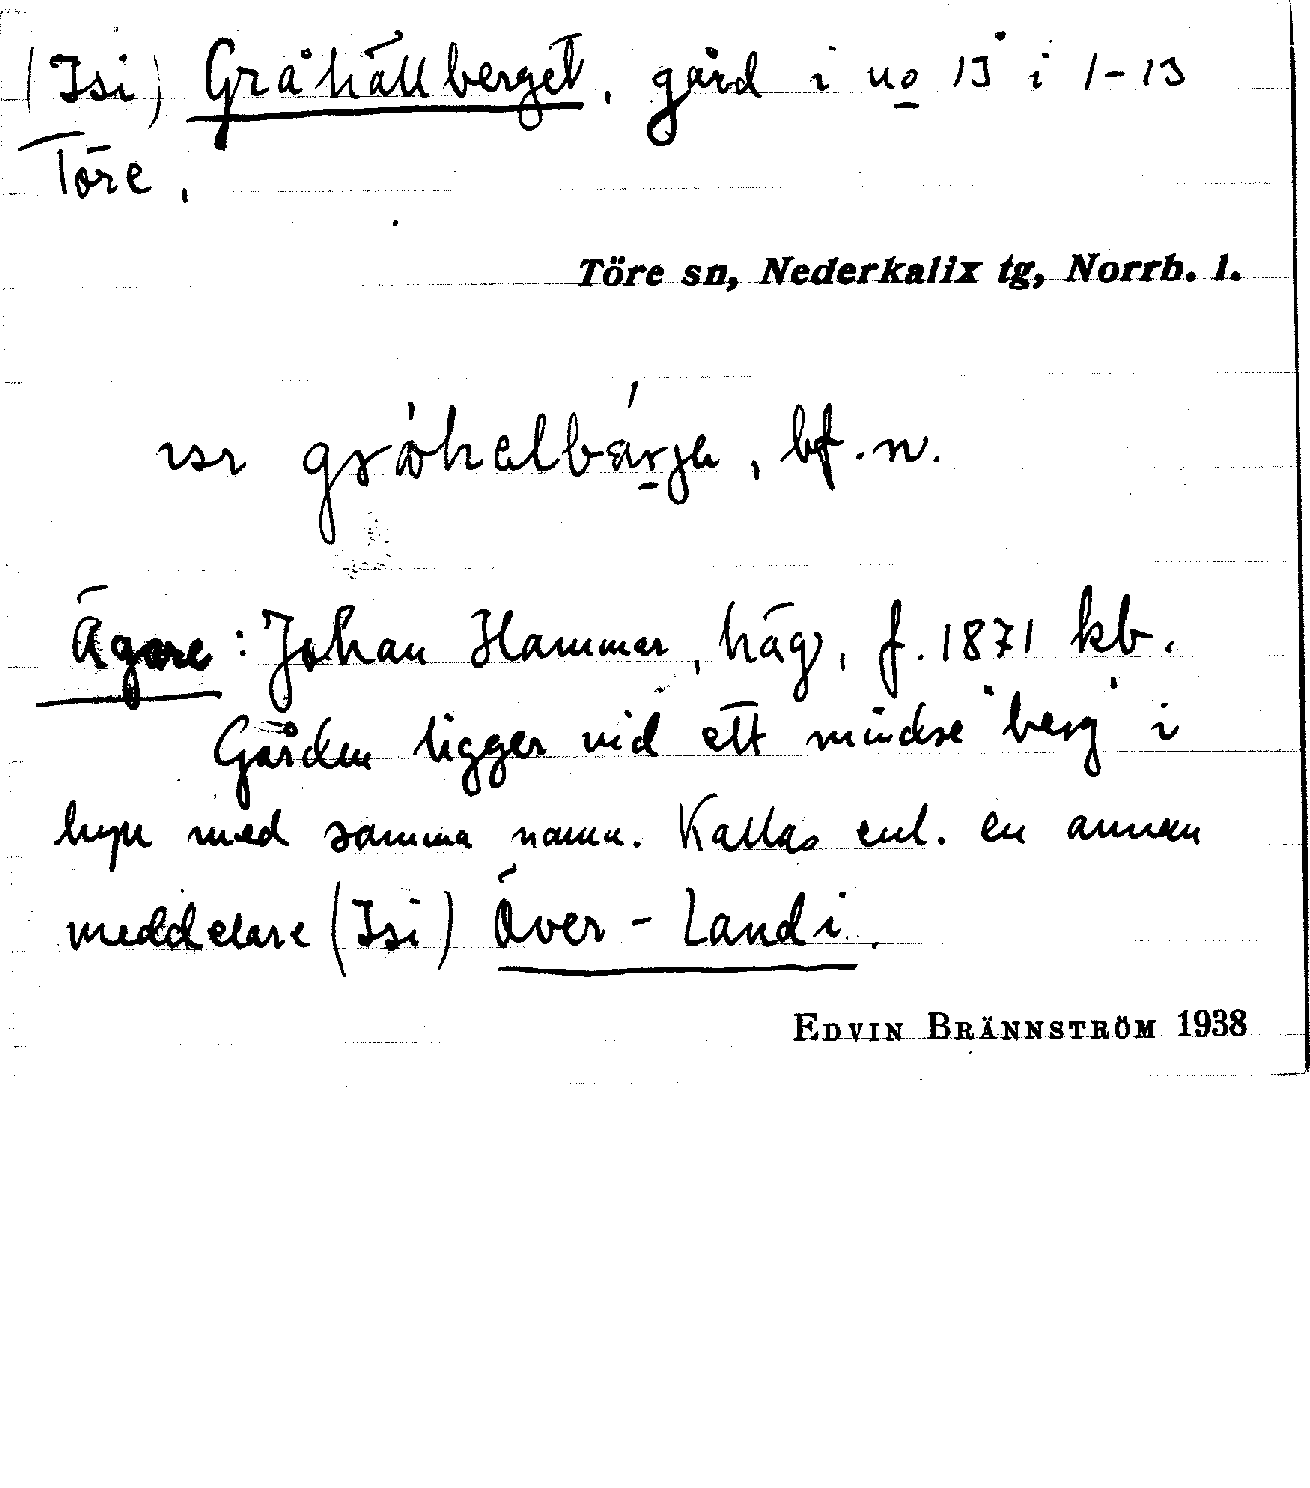 (Isi) Gråhällberget, gård i no 13 i 1-13
Töre.
Töre sn, Nederkalix tg, Norrb. l.
bf. n.
Ägare: Johan Hammar, häg, f. 1871 kb.
Gården ligger vid ett mindre "berg" i
byn med samma namn. Kallas enl. en annan
meddelare (Isi) Över-Landi.
EDVIN BRÄNNSTRÖM 1938